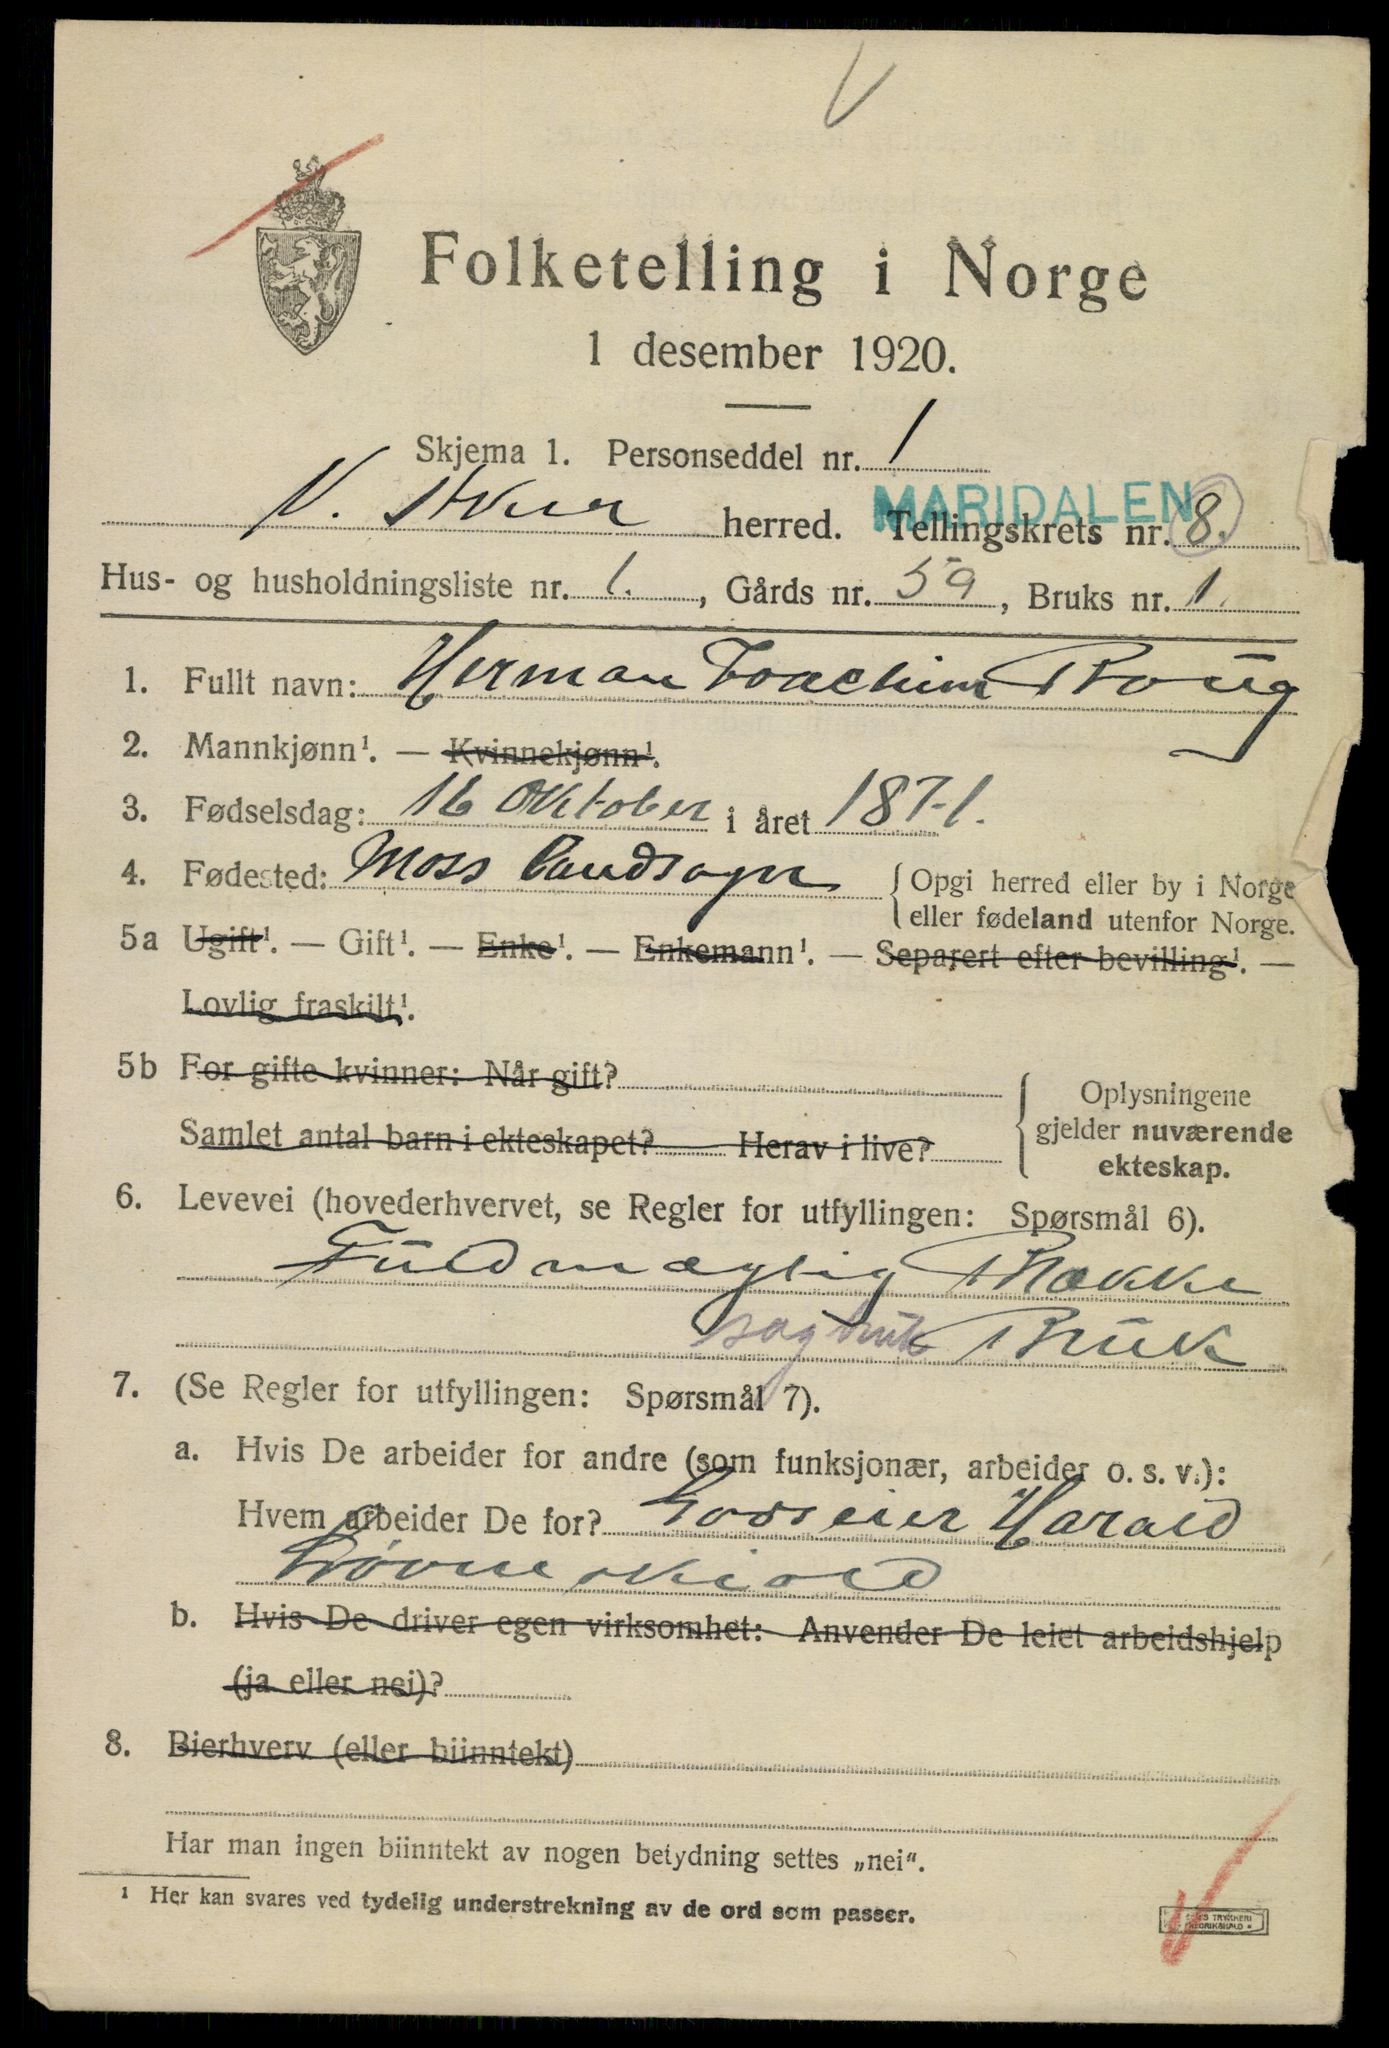 Folketelling i Norge
1 desember 1920.
Skjema 1. Personseddel nr. 1
MARIDALEN
V. Aker herred. Tellingskrets nr. 8.
Hus- og husholdningsliste nr. 1., Gårds nr. 59, Bruks nr. 1.
1. Fullt navn: Herman Joachim
2. Mannkjønn¹. — Kvinnekjønn¹.
3. Fødselsdag: 16 Oktober i året 1871.
4. Fødested: Moss Landsogn {Opgi herred eller by i Norge
eller fødeland utenfor Norge.
5a Ugift¹. — Gift¹. — Enke¹. — Enkemann¹. — Separert efter bevilling¹. —
Lovlig fraskilt¹.
5b For gifte kvinner: Når gift?
Samlet antal barn i ekteskapet? Herav i live?
Oplysningene
gjelder nuværende
ekteskap.
6. Levevei (hovederhvervet, se Regler for utfyllingen: Spørsmål 6).
Fuldmægtig Bakke
sagbruk Bruk
7. (Se Regler for utfyllingen: Spørsmål 7).
a. Hvis De arbeider for andre (som funksjonær, arbeider o. s. v.):
Hvem arbeider De for? Godseier Harald
Løvenskiold
b. Hvis De driver egen virksomhet: Anvender De leiet arbeidshjelp
(ja eller nei)?
8. Bierhverv (eller biinntekt)
Har man ingen biinntekt av nogen betydning settes „nei“.
¹ Her kan svares ved tydelig understrekning av de ord som passer.